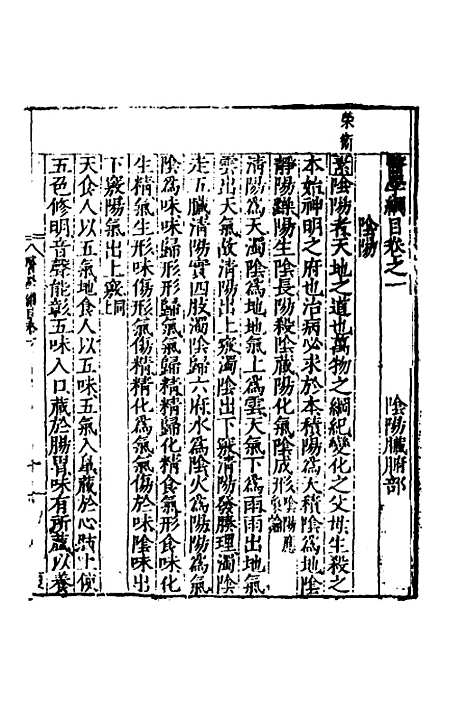 醫學綱目卷之一 陰陽臟腑部
陰陽
榮衛
陰陽者天地之道也萬物之綱紀變化之父母生殺之
本始神明之府也治病必求於本積陽為天積陰為地陰
靜陽躁陽生陰長陽殺陰藏陽化氣陰成形陰陽應象論
清陽為天濁陰為地地氣上為雲天氣下為雨雨出地氣
雲出天氣故清陽出上竅濁陰出下竅清陽發腠理濁陰
走五臟清陽實四肢濁陰歸六府水為陰火為陽陽為氣
陰為味味歸形形歸氣氣歸精精歸化精食氣形食味化
生精氣生形味傷形氣傷精精化為氣氣傷於味陰味出
下竅陽氣出上竅同
天食人以五氣地食人以五味五氣入鼻藏於心肺上使
五色修明音聲能彰五味入口藏於腸胃味有所藏以養